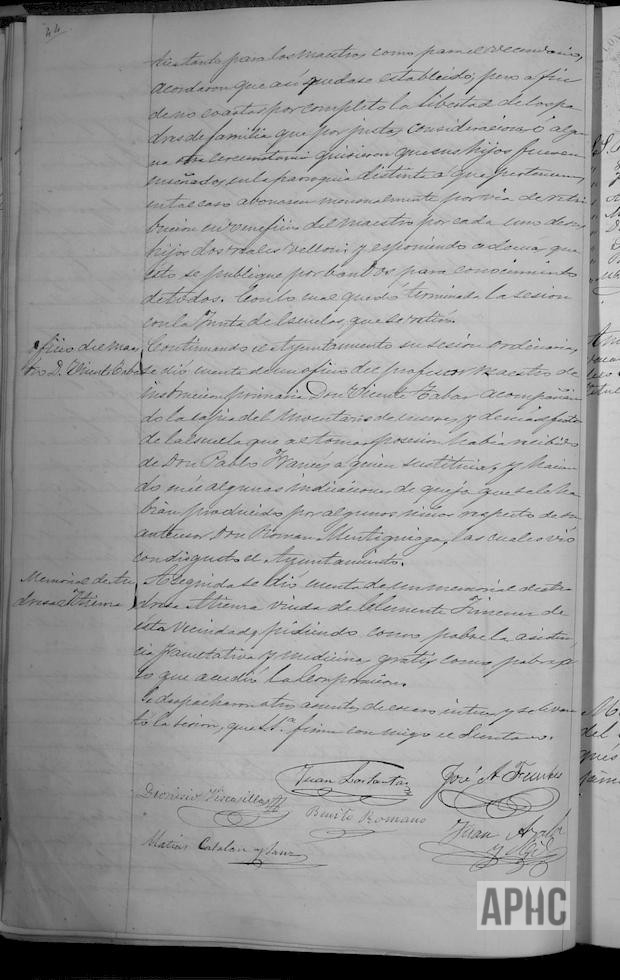 44
tiva tanto para los maestros como para el vecindario,
acordaron que así quedase establecido; pero a fin
de no coartar por completo la libertad de los pa-
dres de familia que por justas consideraciones ó algu-
na circunstancia quisieran que sus hijos fuesen
enseñados en la parroquia distinta á que pertenecen,
en tal caso abonasen mensualmente por via de retri-
bucion en beneficio del maestro por cada uno de sus
hijos dos reales vellon; y esponiendo ademas que
esto se publique por bandos para conocimiento
de todos. Con lo cual quedó terminada la sesion
con la Junta de Escuelas, que se retiró.
Oficio del Maes-
tro D. Vicente Tabar
Continuando el Ayuntamiento su sesion ordinaria,
se dió cuenta de un oficio del profesor Maestro de
instruccion primaria Don Vicente Tabar acompañan-
do la copia del Inventario de enseres y demas efectos
de la Escuela que al tomar posesion habia recibido
de Don Pablo Francés a quien sustituia, y hacien-
do en él algunas indicaciones de queja que se le ha-
bian producido por algunos niños respecto de su
antecesor Don Roman Mentiguiaga, las cuales vió
con disgusto el Ayuntamiento.
Memorial de An-
dresa Atienza
A seguida se dió cuenta de un memorial de An-
dresa Atienza viuda de Clemente Gimenez de
esta vecindad, pidiendo como pobre la asisten-
cia facultativa y medicinas gratis como pobre, á
lo que accedió la Corporacion.
Se despacharon otros asuntos de escaso interes y se levan-
tó la sesion, que S.ª firma conmigo el Secretario.
Juan Lostantao
José A. Fuentes
Dionisio Viscasillas
Benito Romano
Juan
y Gil
Matías Catalan y Sanz
APHC